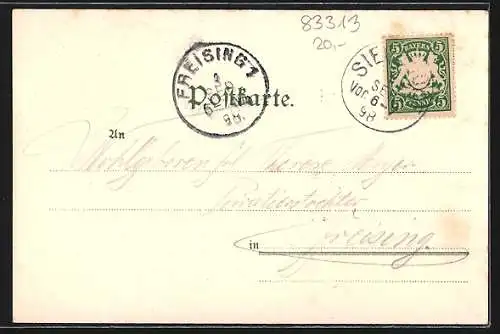 83313
20,-
FREISING 1
SEP
98.
SIE
SEP
Vor 6-
98
5 BAYERN 5
5 PFENNIG 5
Postkarte.
An
Wohlgeboren Frl Therese
Privatierstochter
in Freising.